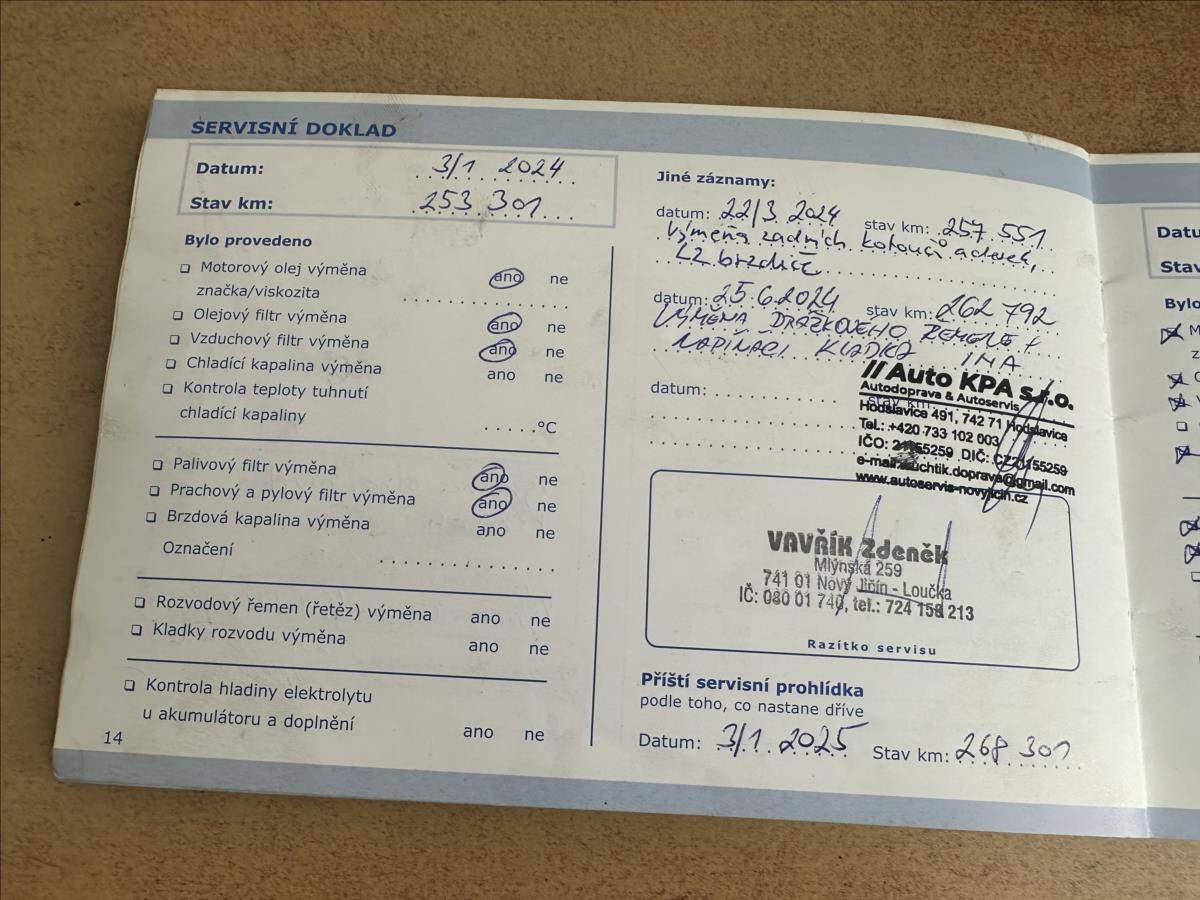 SERVISNÍ DOKLAD
Datum: 3/1 2024
Stav km: 253 301
Bylo provedeno
Motorový olej výměna ano ne
značka/viskozita
Olejový filtr výměna ano ne
Vzduchový filtr výměna ano ne
Chladící kapalina výměna ano ne
Kontrola teploty tuhnutí
chladící kapaliny °C
Palivový filtr výměna ano ne
Prachový a pylový filtr výměna ano ne
Brzdová kapalina výměna ano ne
Označení
Rozvodový řemen (řetěz) výměna ano ne
Kladky rozvodu výměna ano ne
Kontrola hladiny elektrolytu
u akumulátoru a doplnění ano ne
14
Jiné záznamy:
datum: 22/3 2024 stav km: 257 551
Výměna zadních kotoučů a desek,
LZ brzdič
datum: 25.6.2024 stav km: 262 792
VÝMĚNA DRÁŽKOVÉHO ŘEMENE +
NAPÍNACÍ KLADKA INA
datum: stav km:
// Auto KPA s.r.o.
Autodoprava & Autoservis
Hodslavice 491, 742 71 Hodslavice
Tel.: +420 733 102 003
IČO: DIČ:
www.autoservis-novyjicin.cz
VAVŘÍK Zdeněk
Mlýnská 259
741 01 Nový Jičín - Loučka
IČ: 080 01 740, tel.: 724 158 213
Razítko servisu
Příští servisní prohlídka
podle toho, co nastane dříve
Datum: 3/1. 2025 Stav km: 268 301
Datu
Stav
Bylo